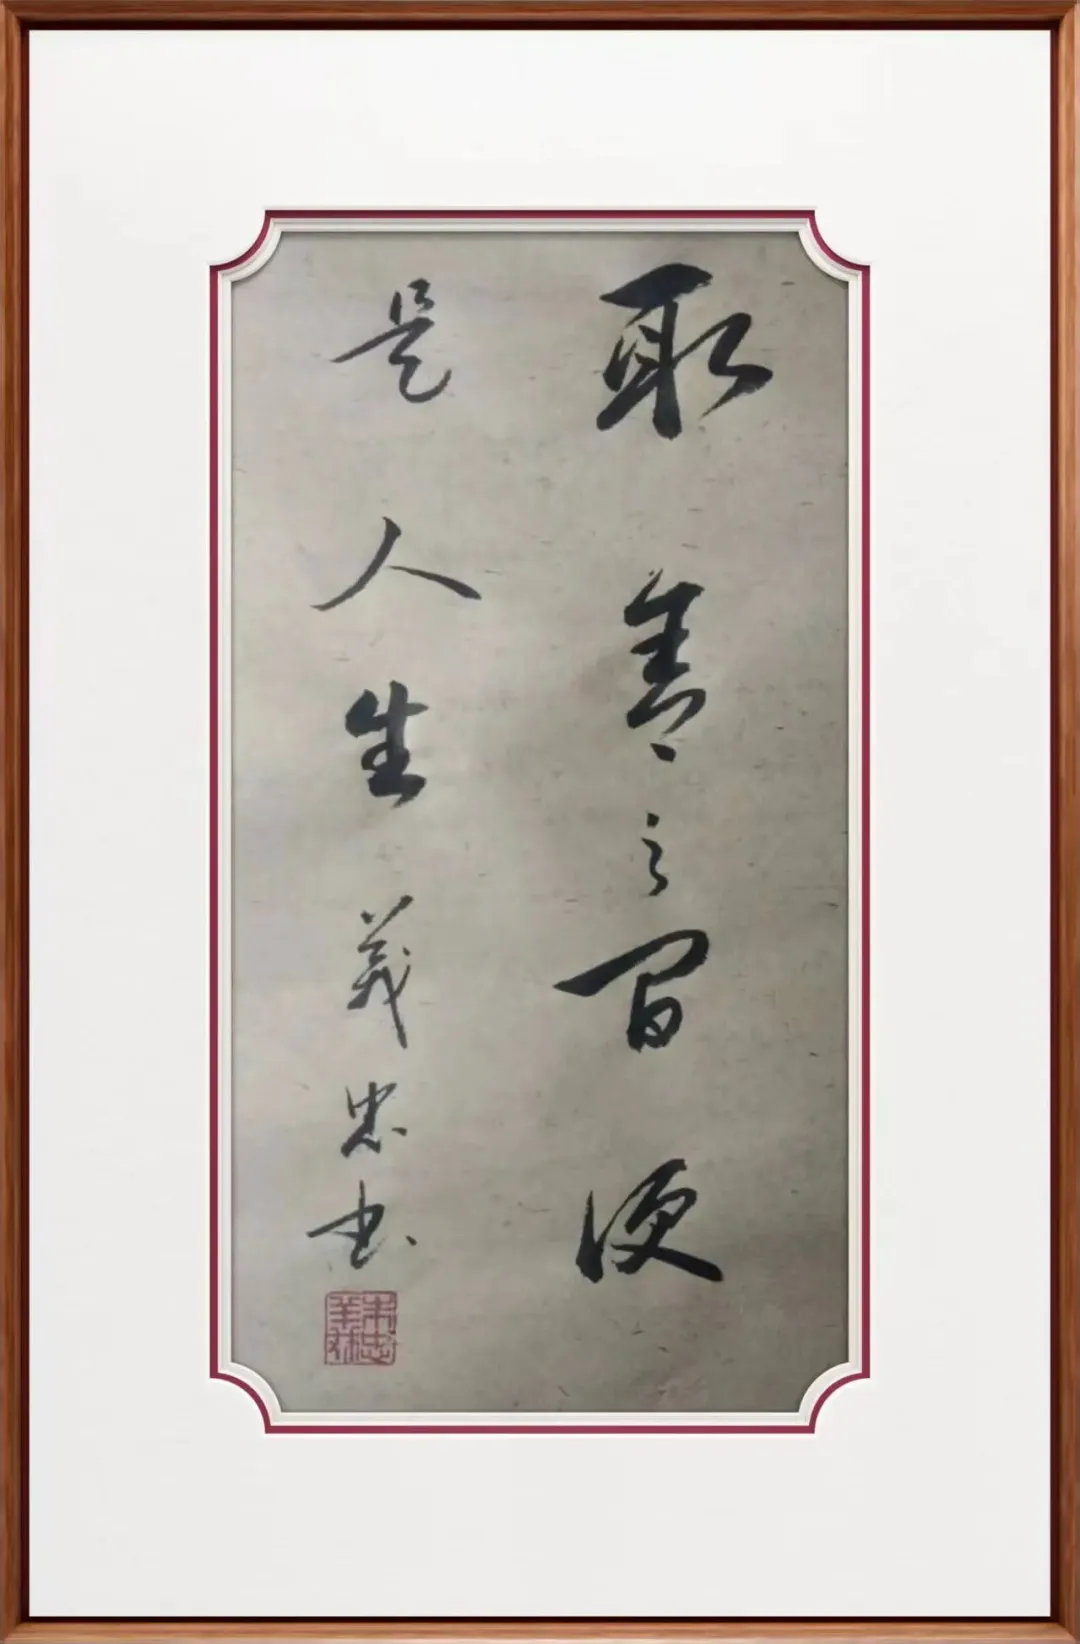 取舍之间便
是人生 義忠书